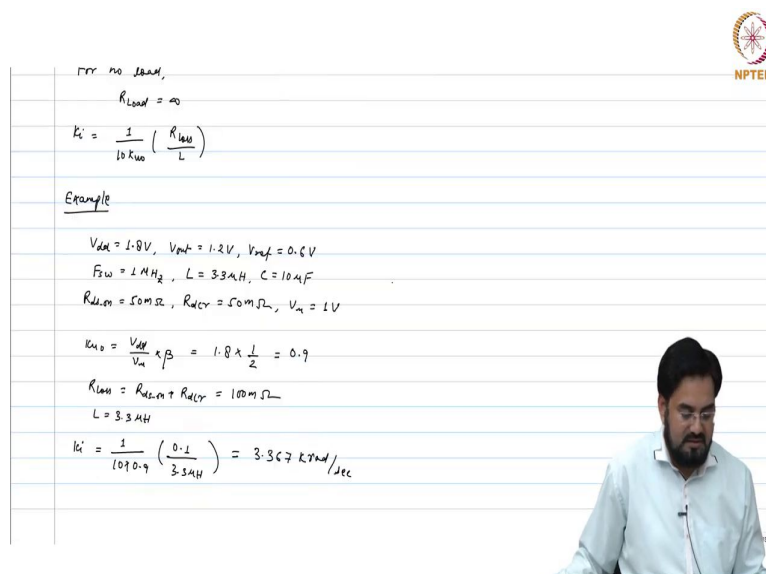 NPTEL
For no load,
R_Load = ∞
Ki = 1/(10 K_uo) (R_loss/L)
Example
Vdd = 1.8V, Vout = 1.2V, Vref = 0.6V
Fsw = 1 MHz, L = 3.3μH, C = 10μF
Rds-on = 50mΩ, Rdcr = 50mΩ, Vm = 1V
K_uo = Vdd/Vm × β = 1.8 × 1/2 = 0.9
R_loss = Rds-on + Rdcr = 100mΩ
L = 3.3 μH
Ki = 1/(10×0.9) (0.1/3.3μH) = 3.367 Krad/sec